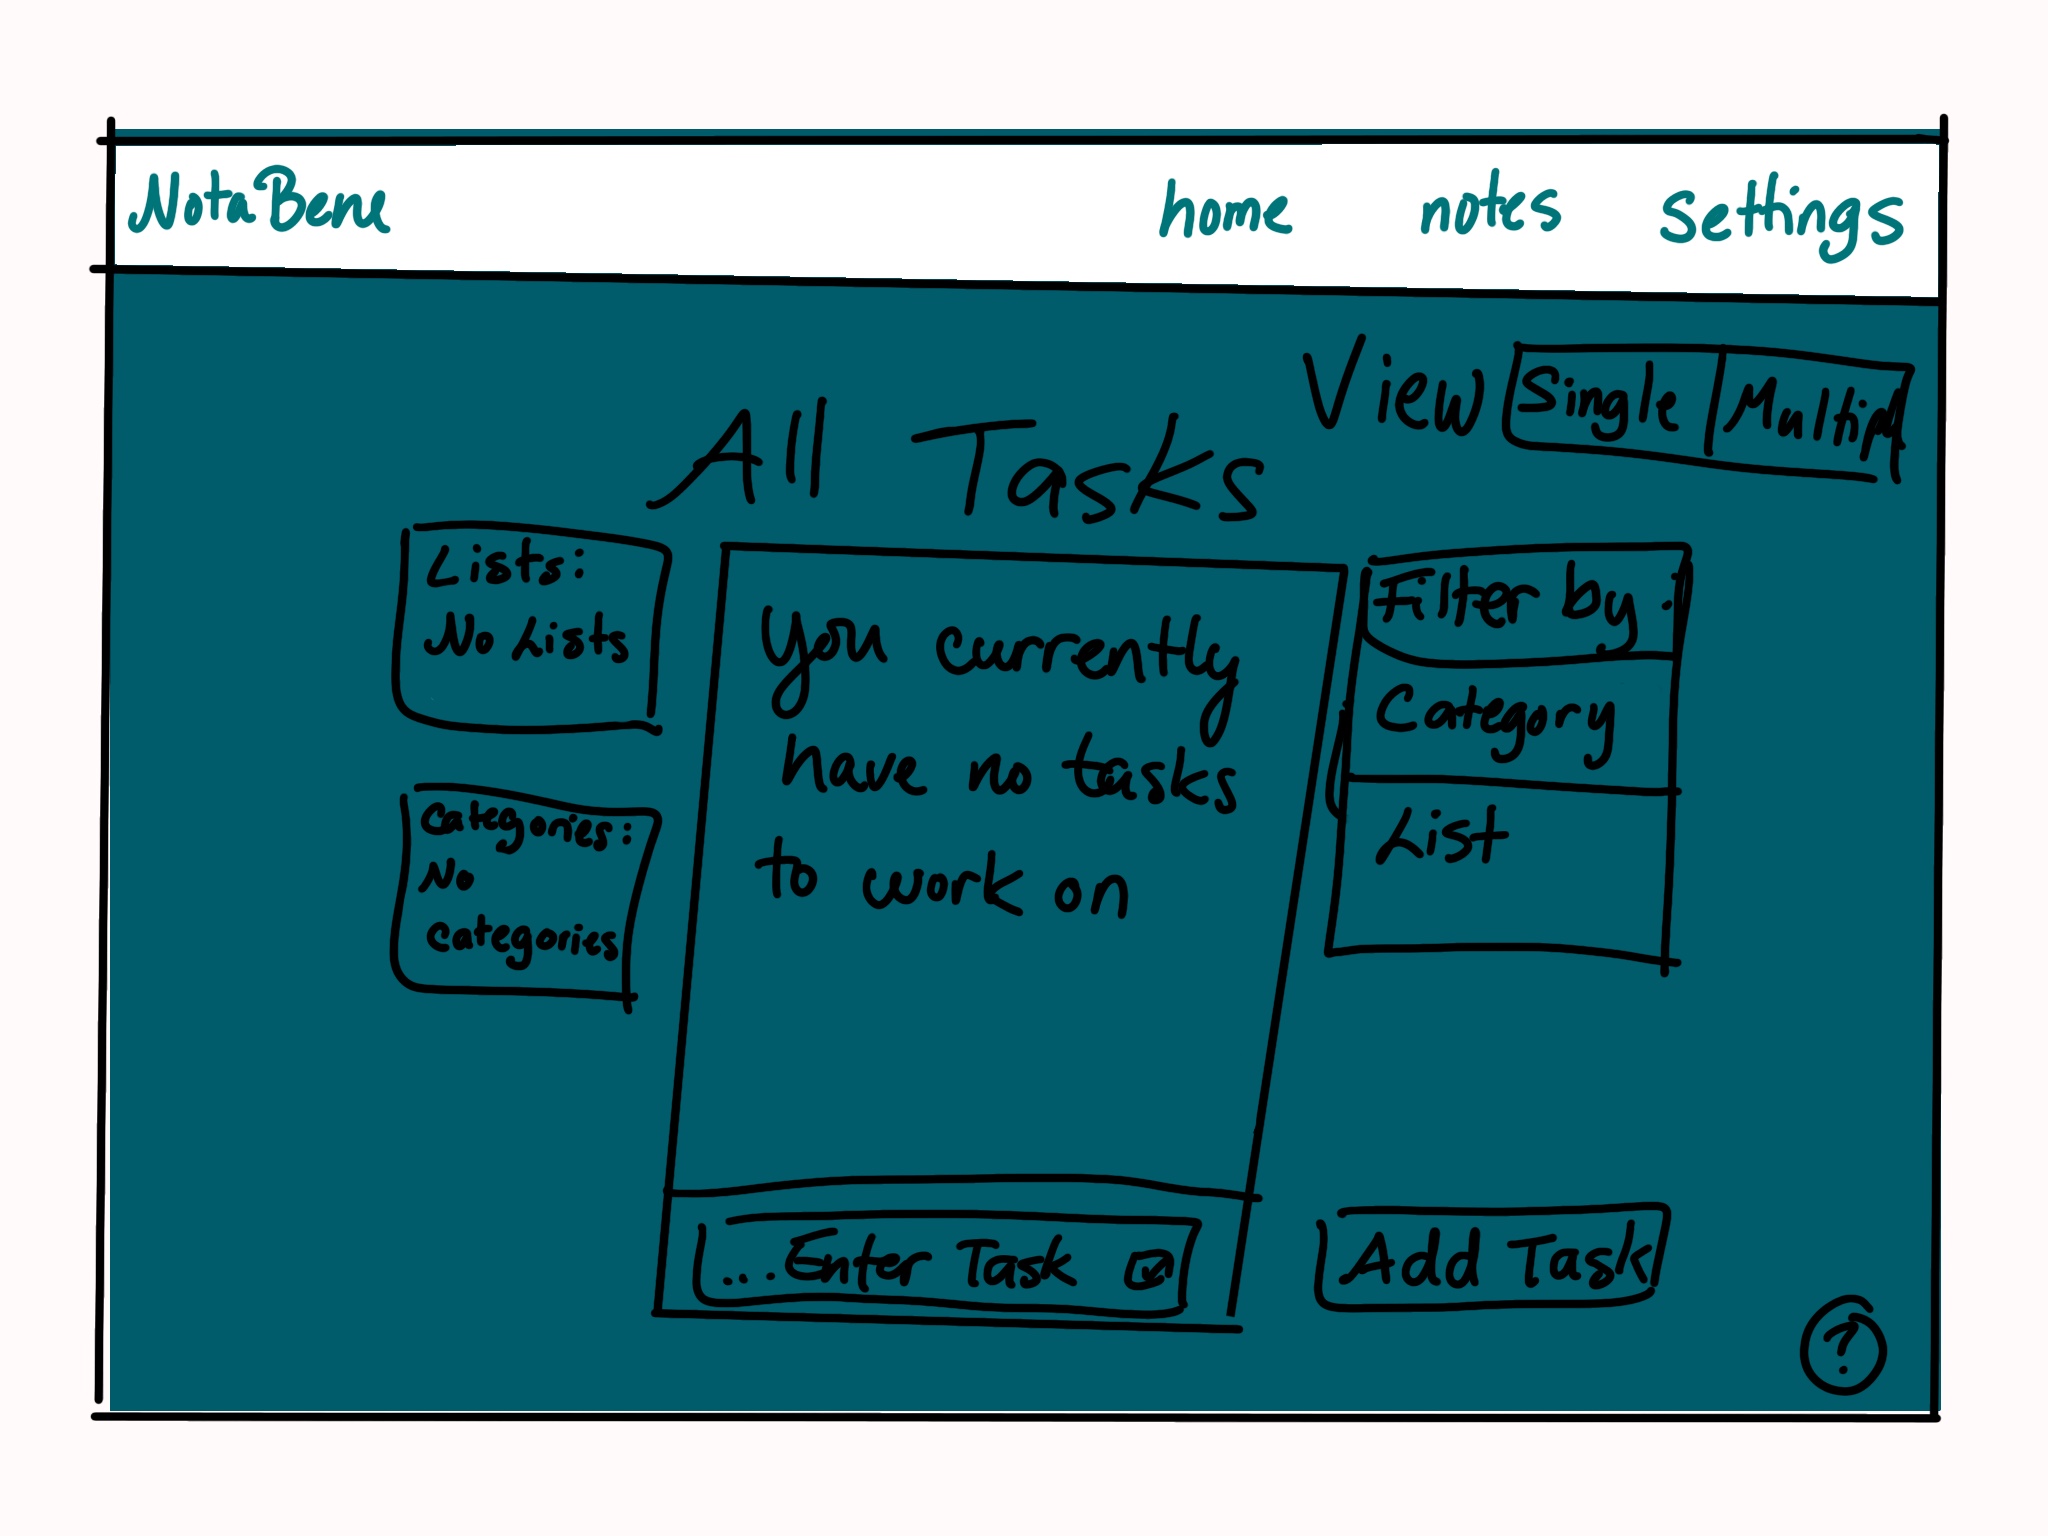 NotaBene home notes settings
View Single Multipl
All Tasks
Lists:
No Lists
Categories:
No
categories
You currently
have no tasks
to work on
...Enter Task
Filter by:
Category
List
Add Task
?